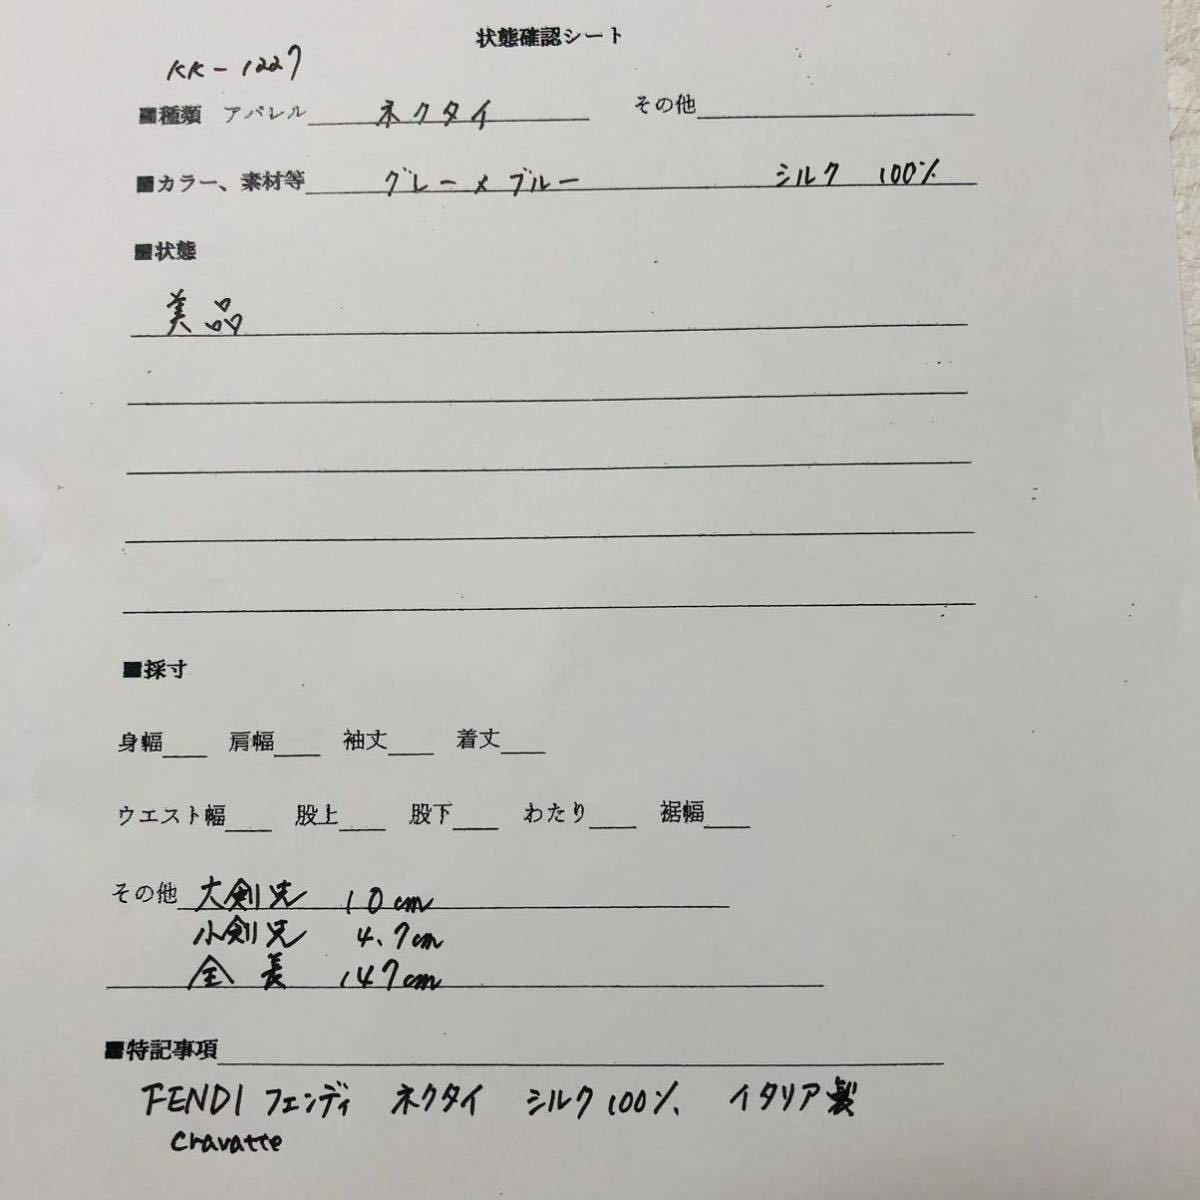 状態確認シート
KK-1227
■種類 アパレル ネクタイ その他
■カラー、素材等 グレー×ブルー シルク 100%
■状態
美品
■採寸
身幅 肩幅 袖丈 着丈
ウエスト幅 股上 股下 わたり 裾幅
その他 大剣先 10cm
小剣先 4.7cm
全長 147cm
■特記事項
FENDI フェンディ ネクタイ シルク100% イタリア製
Cravatte